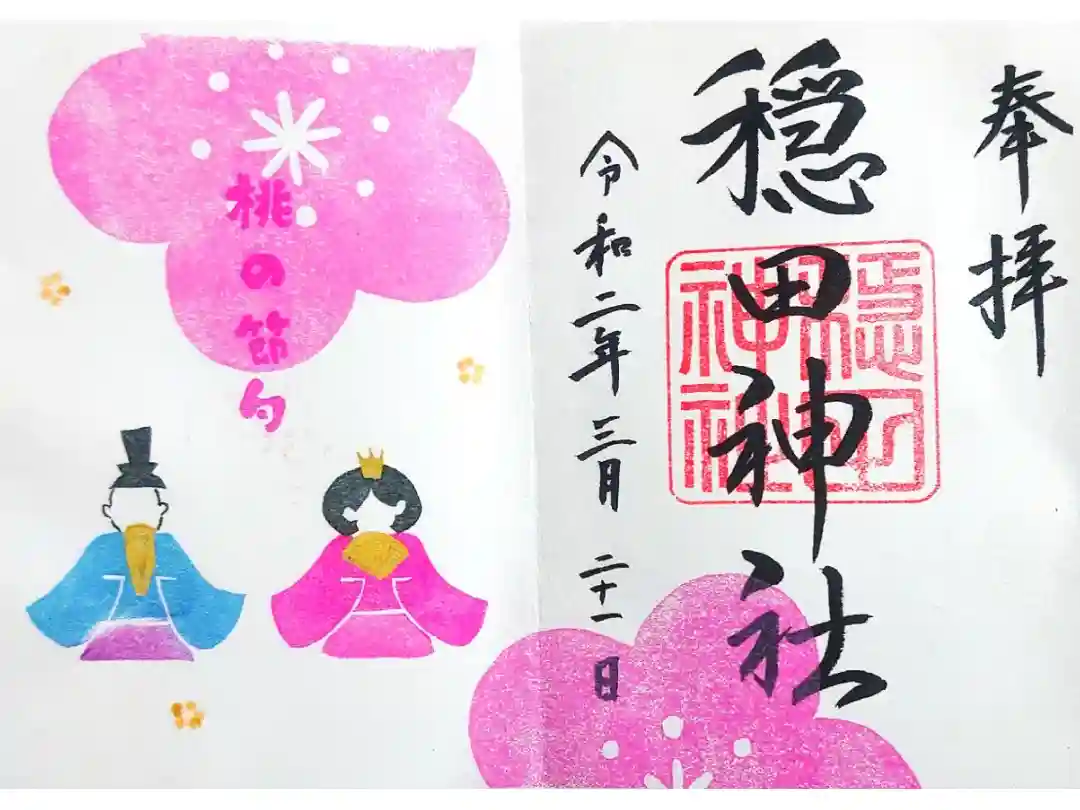 奉拝
穏田神社
穏田
神社
令和二年三月二十一日
桃の節句